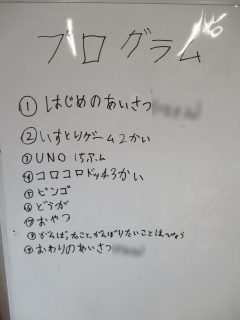 プログラム
① はじめのあいさつ
② いすとりゲーム2かい
③ UNO 15ふん
④ コロコロドッチ3かい
⑤ ビンゴ
⑥ どうが
⑦ おやつ
⑧ がんばったこと、がんばりたいことはっぴょう
⑨ おわりのあいさつ